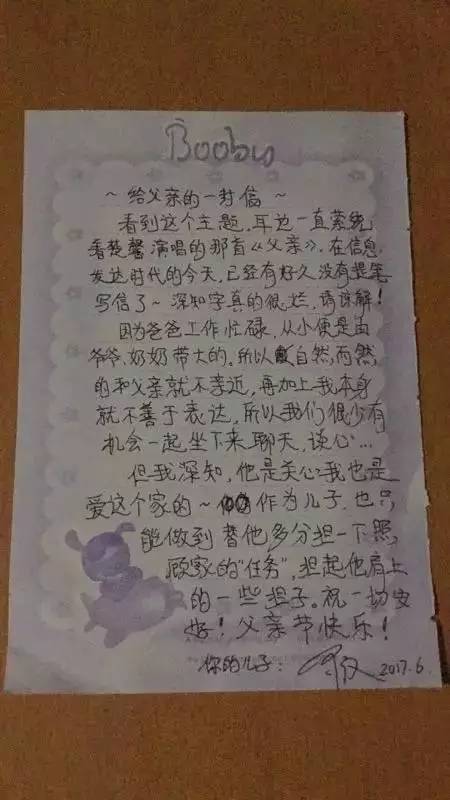 Boobu
~ 给父亲的一封信 ~
看到这个主题,耳边一直萦绕
着楚馨演唱的那首《父亲》。在信息
发达时代的今天,已经有好久没有提笔
写信了~ 深知字真的很烂,请谅解!
因为爸爸工作忙碌,从小便是由
爷爷、奶奶带大的。所以自然而然
的和父亲就不亲近,再加上我本身
就不善于表达,所以我们很少有
机会一起坐下来聊天,谈心…
但我深知,他是关心我也是
爱这个家的~ 作为儿子,也只
能做到替他多分担一下照
顾家的“任务”,担起他肩上
的一些担子。祝一切安
好!父亲节快乐!
你的儿子: 2017.6